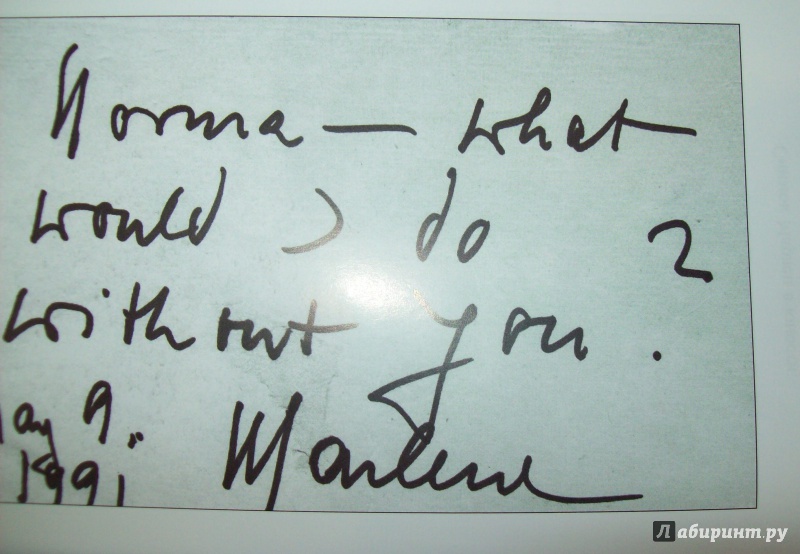 Norma — what
would I do
without you?
May 9.
1991
Marlene
Лабиринт.ру